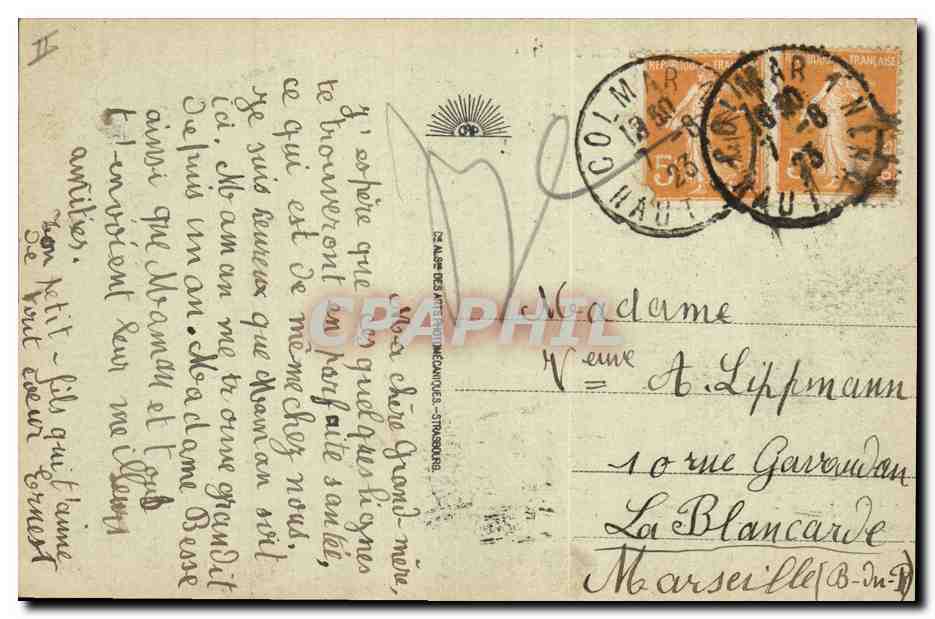 II
Ma chère Grand-mère,
J'espère que ces quelques lignes
te trouveront en parfaite santée,
ce qui est de même chez nous.
Je suis heureux que Maman soit
ici. Maman me trouve grandit
depuis un an. Madame Besse
ainsi que Maman et tous
t'envoient leur meilleurs
amitiés.
Ton petit-fils qui t'aime
de tout coeur Ernest
Cie ALSne DES ARTS PHOTOMÉCANIQUES.-STRASBOURG.
COLMAR
18 30
1-8
23
HAUT
COLMAR
18 30
1-8
23
HAUT RHIN
REPUBLIQUE FRANÇAISE
5c
Madame
Veuve
A. Lippmann
10 rue Gavaudan
La Blancarde
Marseille (B-du-R)
CPAPHIL